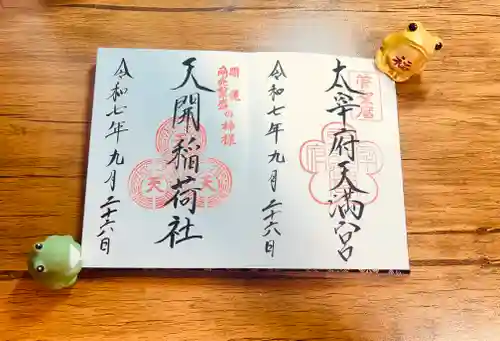 太宰府天満宮
令和七年九月二十六日
開運
商売繁昌の神様
天開稲荷社
天
天
令和七年九月二十六日